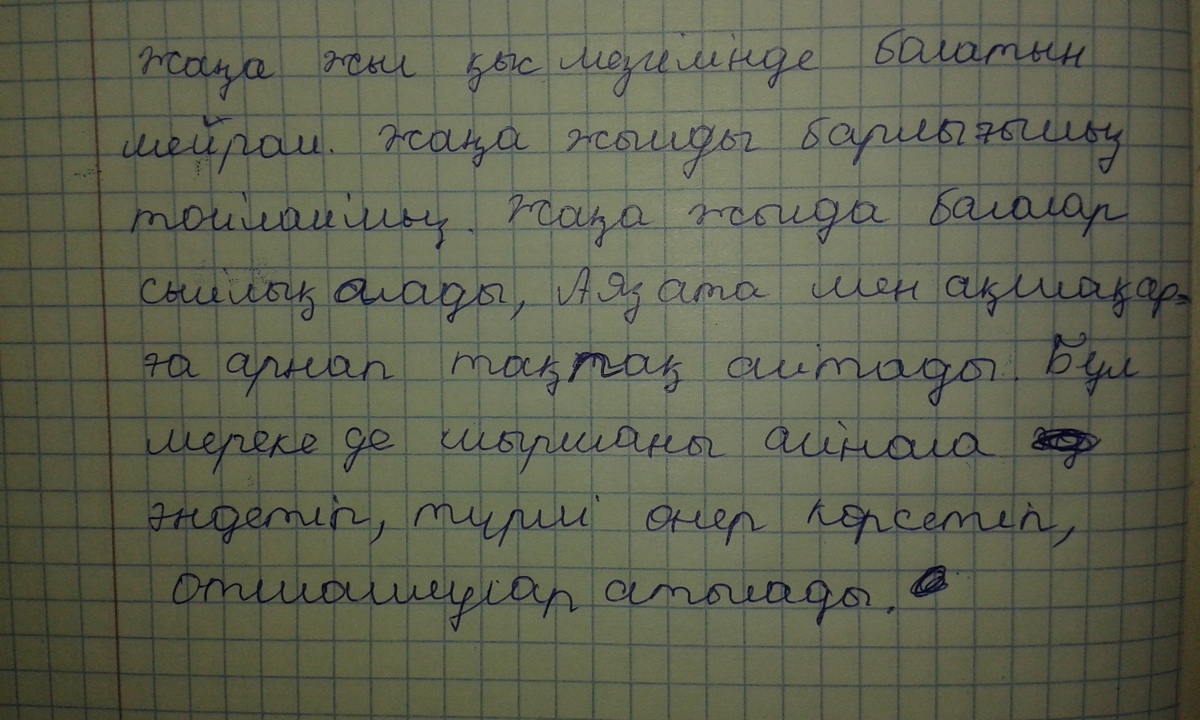 Жаңа жыл қыс мезгілінде болатын
мейрам. Жаңа жылды барлығымыз
тойлаймыз. Жаңа жылда балалар
сыйлық алады, Аяз ата мен ақшақар-
ға арнап тақпақ айтады. Бұл
мереке де шыршаны айнала
әндетіп, түрлі өнер көрсетіп,
отшашулар атылады.